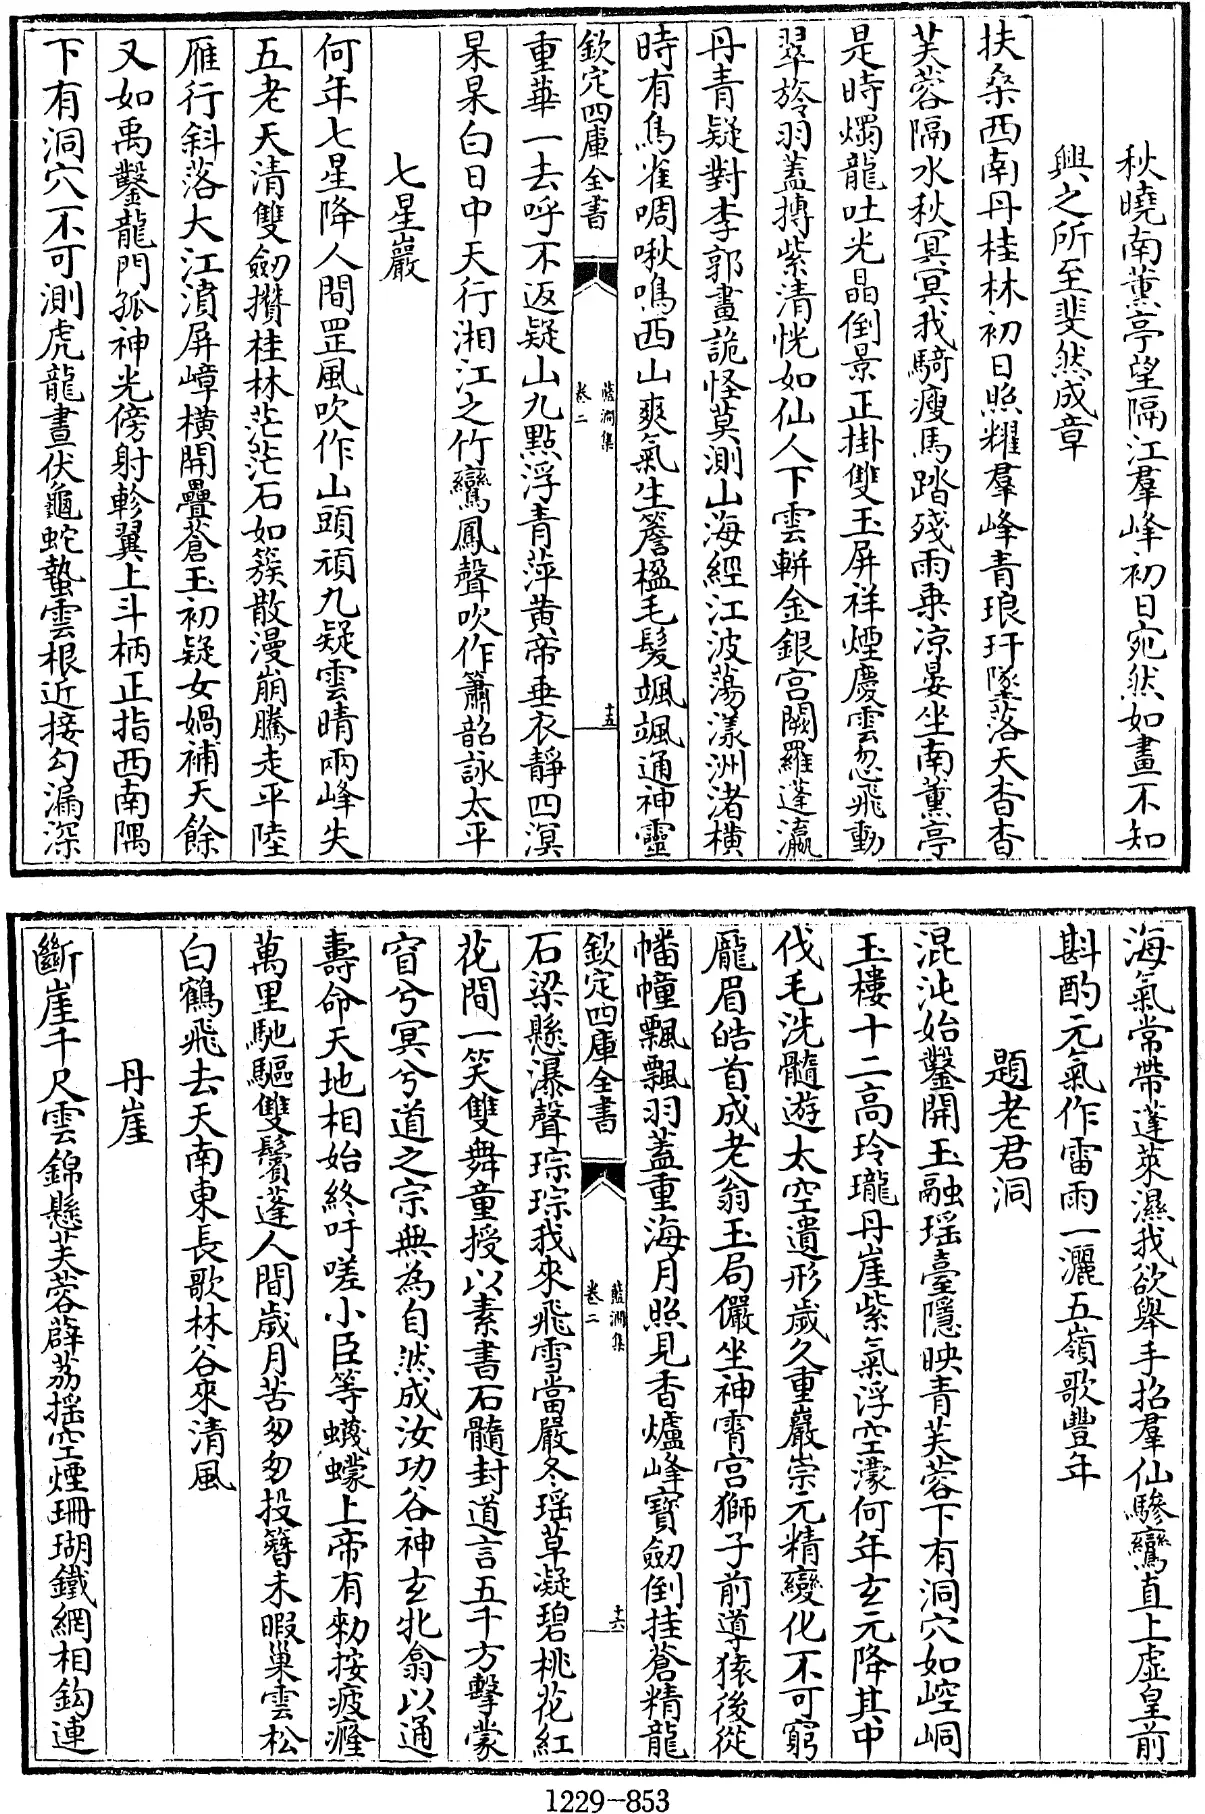 秋曉南薰亭望隔江羣峰初日宛然如畫不知
興之所至斐然成章
扶桑西南丹桂林初日照耀羣峰青琅玕墜落天杳杳
芙蓉隔水秋冥冥我騎瘦馬踏殘雨乗凉晏坐南薰亭
是時燭龍吐光晶倒景正掛雙玉屏祥煙慶雲忽飛動
翠旍羽蓋摶紫清恍如仙人下雲軿金銀宫闕羅蓬瀛
丹青疑對李郭畫詭怪莫測山海經江波蕩漾洲渚横
時有鳥雀啁啾鳴西山爽氣生簷楹毛髮颯颯通神靈
欽定四庫全書
藍澗集
卷二
十五
重華一去呼不返疑山九點浮青萍黄帝垂衣静四溟
杲杲白日中天行湘江之竹鸞鳳聲吹作簫韶詠太平
七星巖
何年七星降人間罡風吹作山頭頑九疑雲晴兩峰失
五老天清雙劒攢桂林茫茫石如簇散漫崩騰走平陸
雁行斜落大江濆屏嶂横開疊蒼玉初疑女媧補天餘
又如禹鑿龍門孤神光傍射軫翼上斗柄正指西南隅
下有洞穴不可測虎龍晝伏龜蛇蟄雲根近接勾漏深
海氣常帶蓬萊濕我欲舉手招羣仙驂鸞直上虛皇前
斟酌元氣作雷雨一灑五嶺歌豐年
題老君洞
混沌始鑿開玉融瑶臺隱映青芙蓉下有洞穴如崆峒
玉樓十二高玲瓏丹崖紫氣浮空濛何年玄元降其中
伐毛洗髓遊太空遺形歲久重巖崇元精變化不可窮
龎眉皓首成老翁玉局儼坐神霄宫獅子前導猿後從
幡幢飄飄羽蓋重海月照見香爐峰寶劒倒挂蒼精龍
欽定四庫全書
藍澗集
卷二
十六
石梁懸瀑聲琮琮我來飛雪當嚴冬瑶草凝碧桃花紅
花間一笑雙舞童授以素書石髓封道言五千方擊蒙
窅兮冥兮道之宗無為自然成汝功谷神玄牝翕以通
壽命天地相始終吁嗟小臣等蠛蠓上帝有勅按疲癃
萬里馳驅雙鬢蓬人間歲月苦匆匆投簪未暇巢雲松
白鶴飛去天南東長歌林谷來清風
丹崖
斷崖千尺雲錦懸芙蓉薜荔揺空煙珊瑚鐵網相鈎連
1229-853